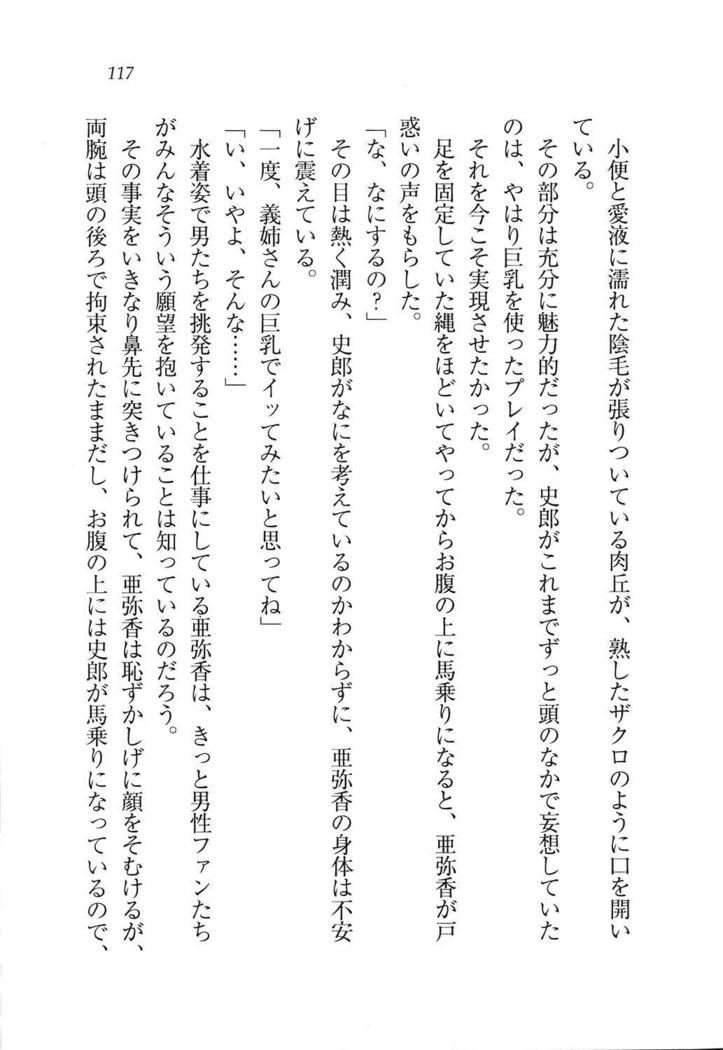 117
小便と愛液に濡れた陰毛が張りついている肉丘が、熟したザクロのように口を開い
ている。
その部分は充分に魅力的だったが、史郎がこれまでずっと頭のなかで妄想していた
のは、やはり巨乳を使ったプレイだった。
それを今こそ実現させたかった。
足を固定していた縄をほどいてやってからお腹の上に馬乗りになると、亜弥香が戸
惑いの声をもらした。
「な、なにするの?」
その目は熱く潤み、史郎がなにを考えているのかわからずに、亜弥香の身体は不安
げに震えている。
「一度、義姉さんの巨乳でイッてみたいと思ってね」
「い、いやよ、そんな……」
水着姿で男たちを挑発することを仕事にしている亜弥香は、きっと男性ファンたち
がみんなそういう願望を抱いていることは知っているのだろう。
その事実をいきなり鼻先に突きつけられて、亜弥香は恥ずかしげに顔をそむけるが、
両腕は頭の後ろで拘束されたままだし、お腹の上には史郎が馬乗りになっているので、